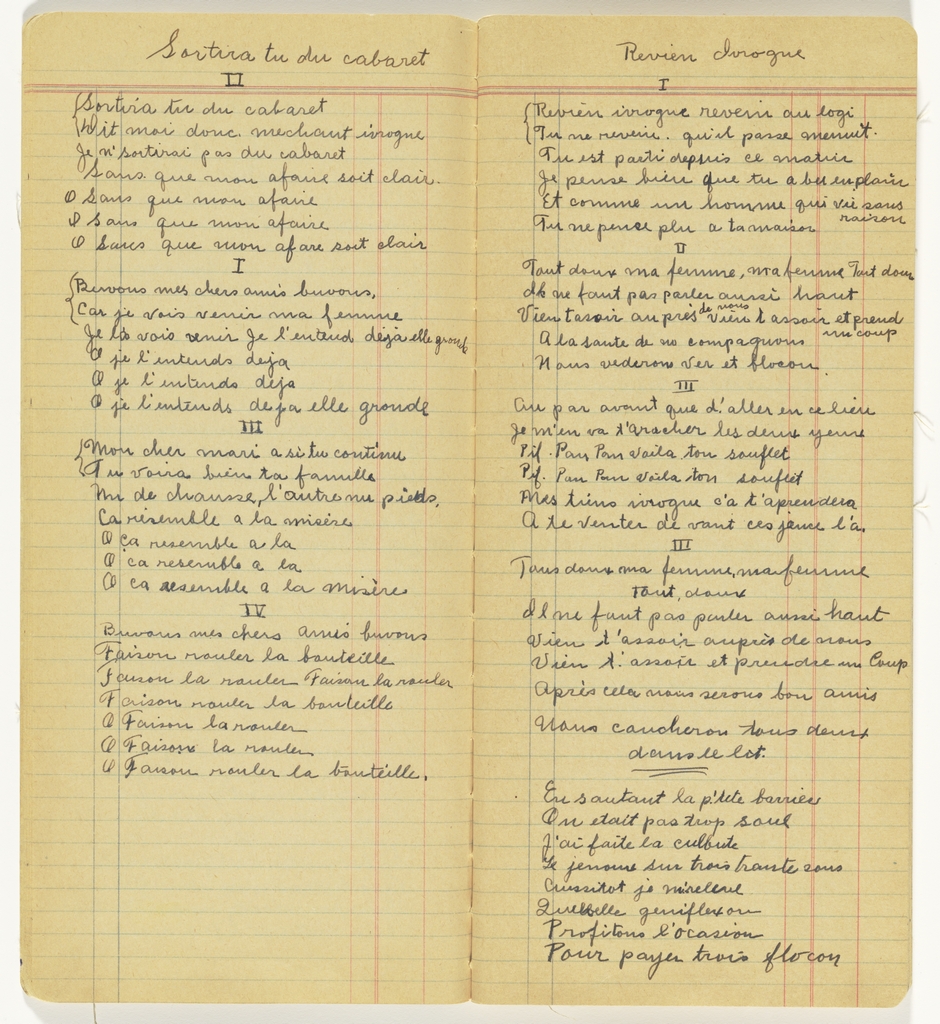 Sortira tu du cabaret
II
Sortira tu du cabaret
Dit moi donc. mechant ivrogne
Je n'sortirai pas du cabaret
Sans que mon afaire soit clair.
O Sans que mon afaire
O Sans que mon afaire
O Sans que mon afare soit clair
I
Buvons mes chers amis buvons,
Car je vois venir ma femme
Je la vois venir Je l'entend déja elle gronde
O je l'intends deja
O je l'entends deja
O je l'entends deja elle gronde
III
Mon cher mari a si tu continu
Tu voira bien ta famille
Un de chausse, l'autre nu pieds,
Ca résemble a la misère
O ça resemble a la
O ça resemble a la
O ca resemble a la misère
IV
Buvons mes chers amis buvons
Faison rouler la bouteille
Faison la rouler Faison la rouler
Faison rouler la bouteille
O Faison la rouler
O Faison la rouler
O Faison rouler la bouteille.
Revien Ivrogne
I
Revien ivrogne revein au logi
Tu ne revein. qu'il passe menuit.
Tu est parti depuis ce matin
Je pense bien que tu a bu en plain
Et comme un homme qui vie sans raison
Tu ne pense plu a ta maison
II
Tout doux ma femme, ma femme Tout doux
Il ne faut pas parler aussi haut
Vien t'asoir auprès de nous Vien t'assoir et prend un coup
A la sante de no compagnons
Nous vederon ver et flocon.
III
Au par avant que d'aller en ce lieu
Je m'en va t'aracher les deux yeux
Pif. Pan Pan voila ton souflet
Pif. Pan Pan voila ton souflet
Mes tiens ivrogne c'a t'aprendera
A te venter de vant ces jence l'a.
III
Tous doux ma femme, ma femme
Tout, doux
Il ne faut pas parler aussi haut
Vien t'assoir auprès de nous
Vien t'assoir et prendre un Coup
Après cela nous serons bon amis
Nous coucheron tous deux
dans le lit.
En sautant la p'tite barrier
On etait pas trop soul
J'ai faite la culbute
Le jenoux sur trois trante sous
Aussitot je m'releve
Quelle geniflexon
Profitons l'ocasion
Pour payer trois flocon